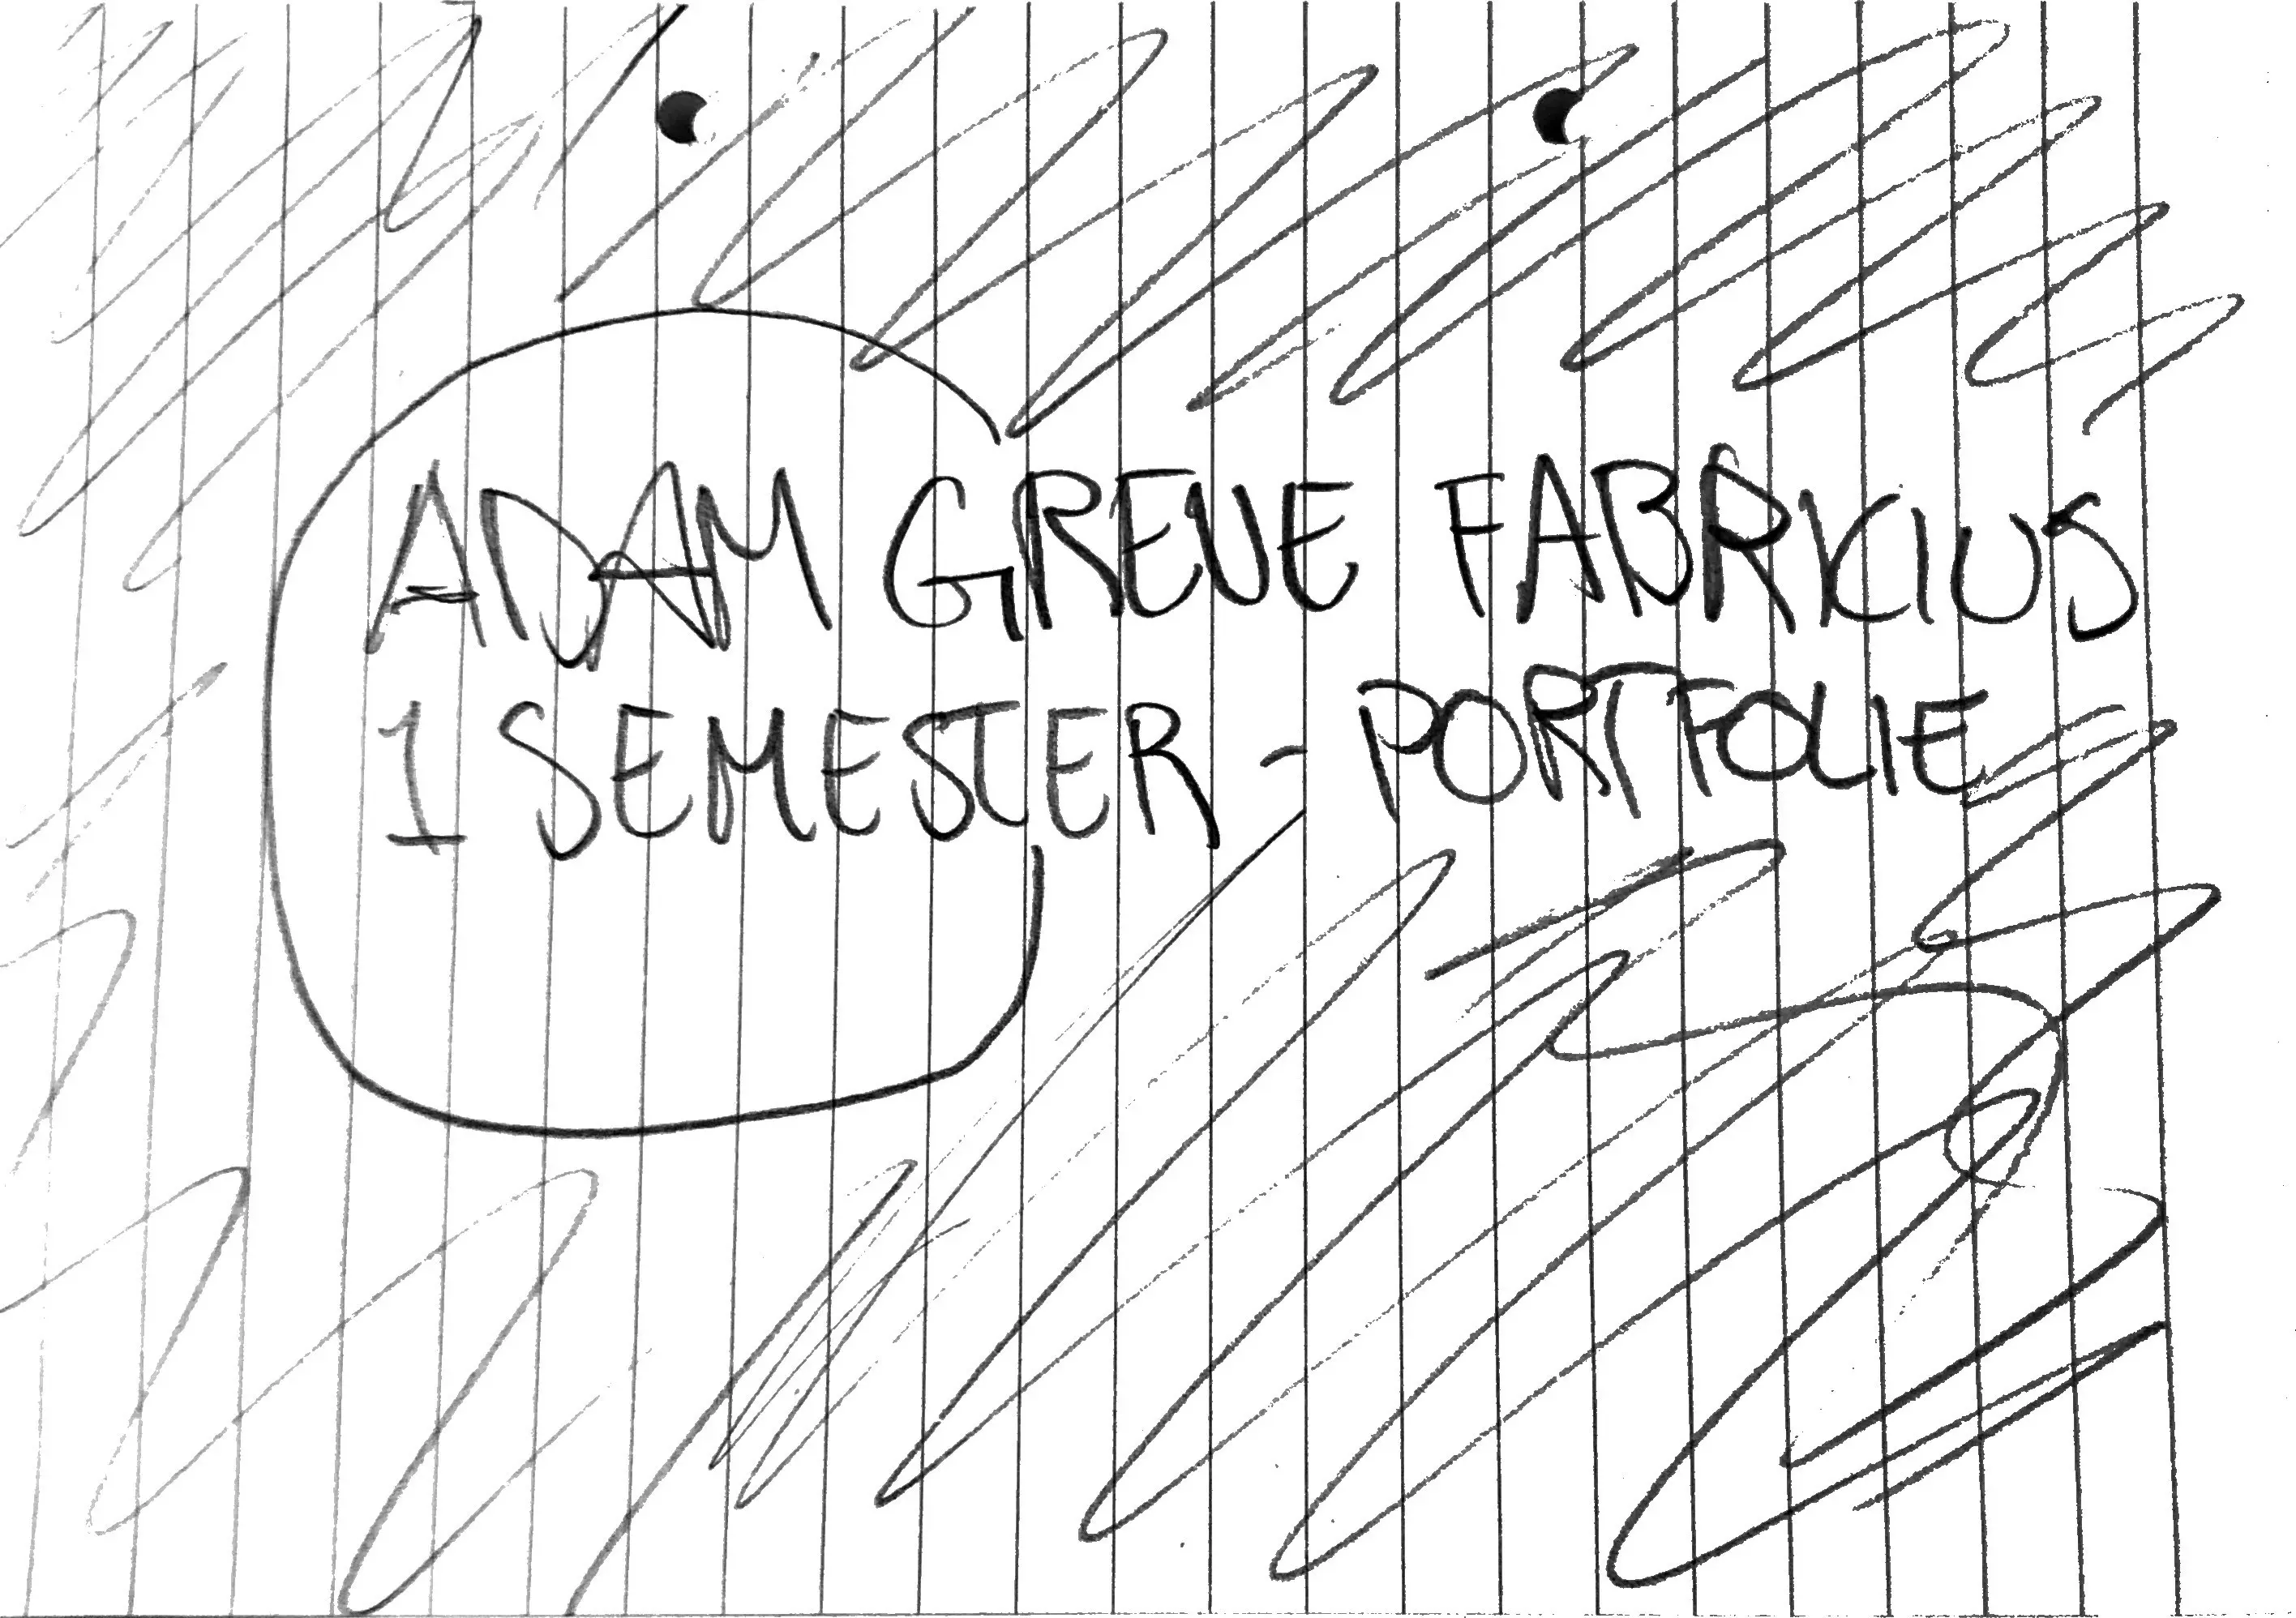 ADAM GREVE FABRICIUS
1 SEMESTER - PORTFOLIE